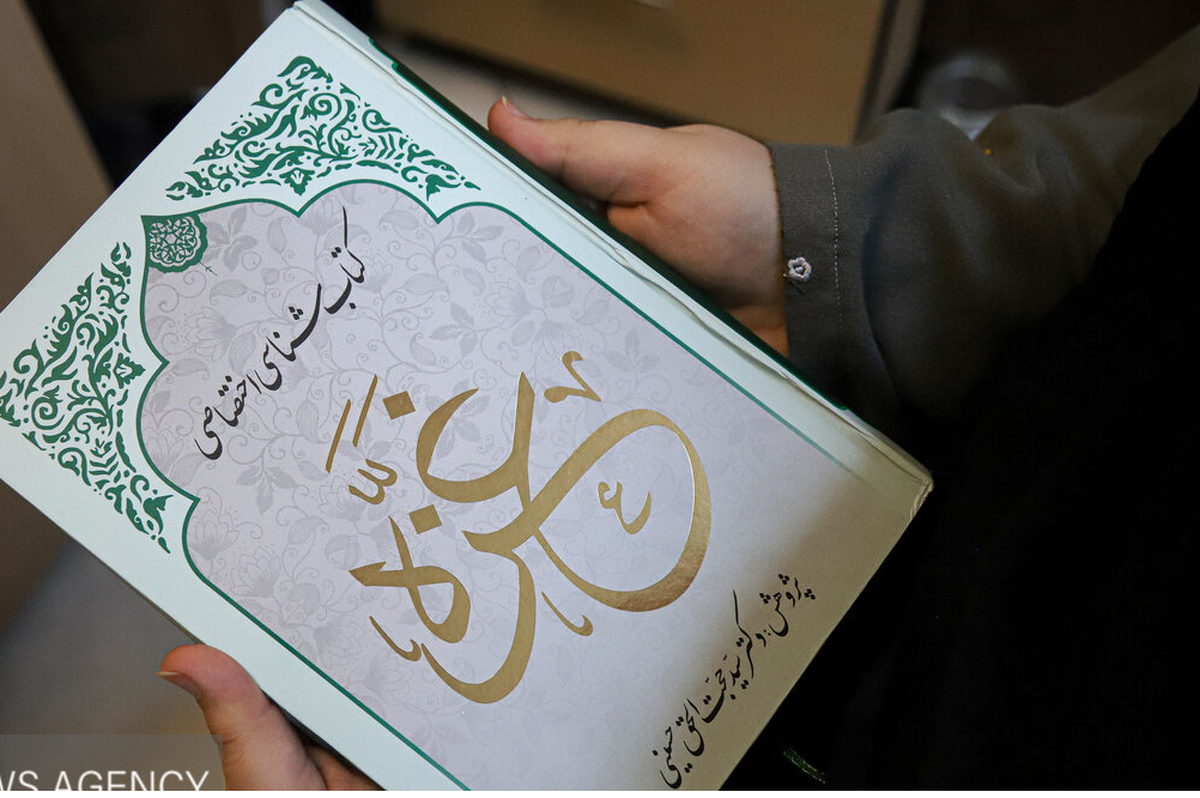 کتاب‌شناسی اختصاصی
غزّه
پژوهش: دکتر سید حجت الحق حسینی
WS AGENCY